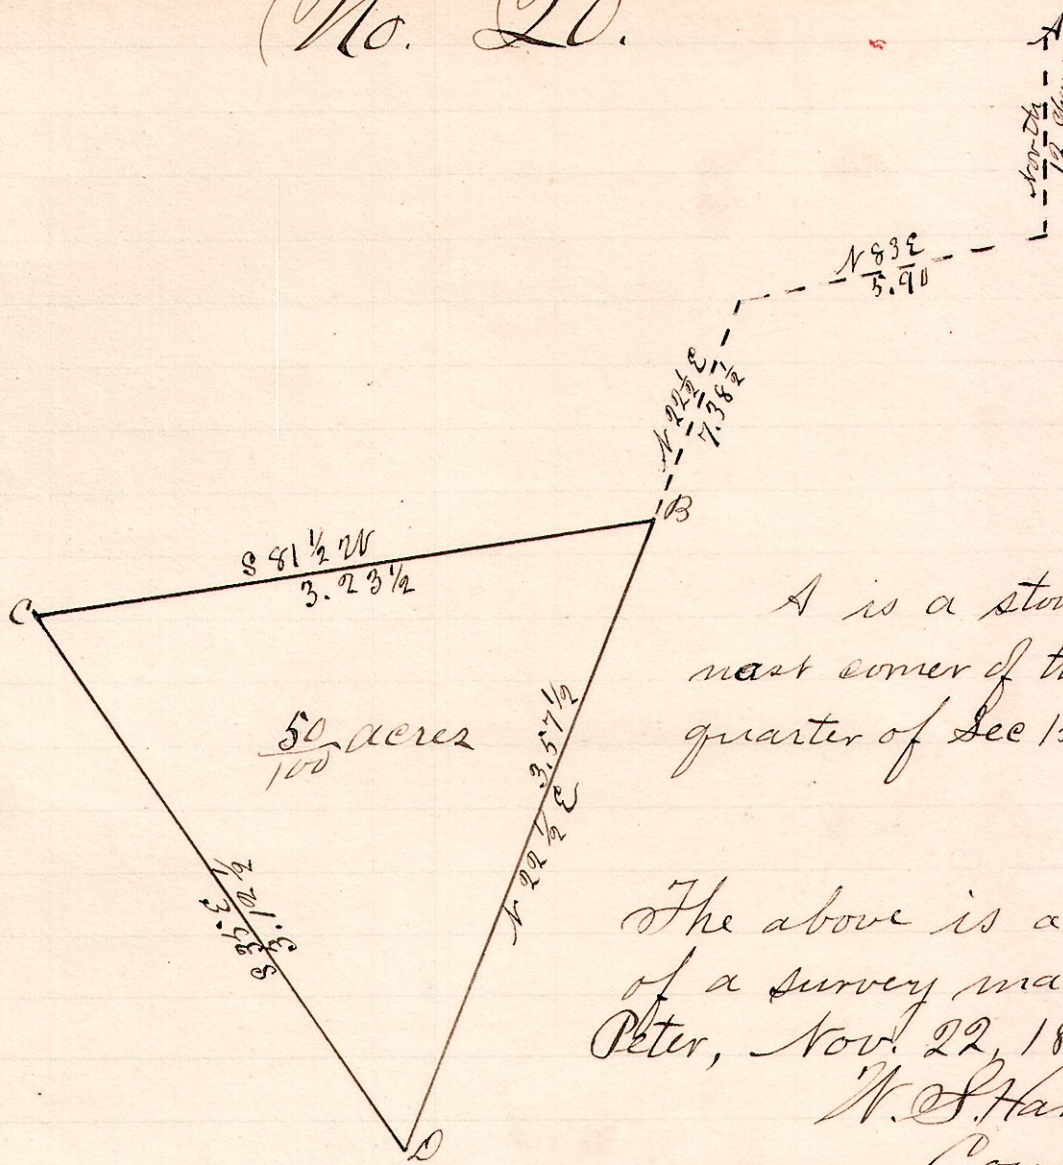 No. 20.
A
North
12
N 83 E
5.90
N 22½ E
7.38½
B
S 81½ W
3.23½
C
50/100 acres
3.57½
N 22½ E
S 35 E
3.12½
D
A is a sto
nast corner of t
quarter of Sec 1
The above is a
of a survey ma
Peter, Nov. 22, 18
W. S. Ha
Co